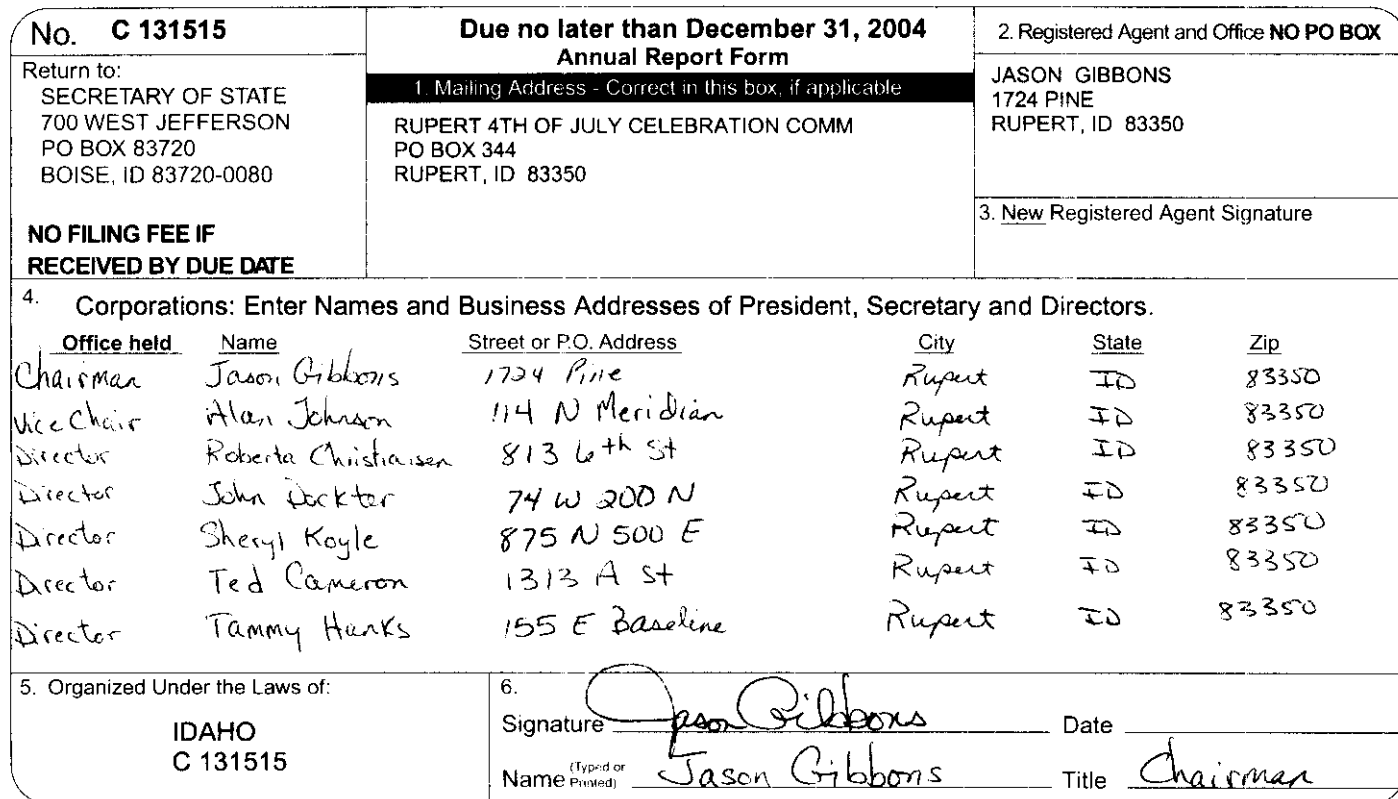 No. C 131515
Return to:
SECRETARY OF STATE
700 WEST JEFFERSON
PO BOX 83720
BOISE, ID 83720-0080
NO FILING FEE IF
RECEIVED BY DUE DATE
Due no later than December 31, 2004
Annual Report Form
1. Mailing Address - Correct in this box, if applicable
RUPERT 4TH OF JULY CELEBRATION COMM
PO BOX 344
RUPERT, ID 83350
2. Registered Agent and Office NO PO BOX
JASON GIBBONS
1724 PINE
RUPERT, ID 83350
3. New Registered Agent Signature
4. Corporations: Enter Names and Business Addresses of President, Secretary and Directors.
Office held Name Street or P.O. Address City State Zip
Chairman Jason Gibbons 1724 Pine Rupert ID 83350
Vice Chair Alan Johnson 114 N Meridian Rupert ID 83350
Director Roberta Christiansen 813 6th St Rupert ID 83350
Director John Dockter 74 W 200 N Rupert ID 83350
Director Sheryl Koyle 875 N 500 E Rupert ID 83350
Director Ted Cameron 1313 A St Rupert ID 83350
Director Tammy Hanks 155 E Baseline Rupert ID 83350
5. Organized Under the Laws of:
IDAHO
C 131515
6.
Signature Jason Gibbons Date
Name (Typed or Printed) Jason Gibbons Title Chairman